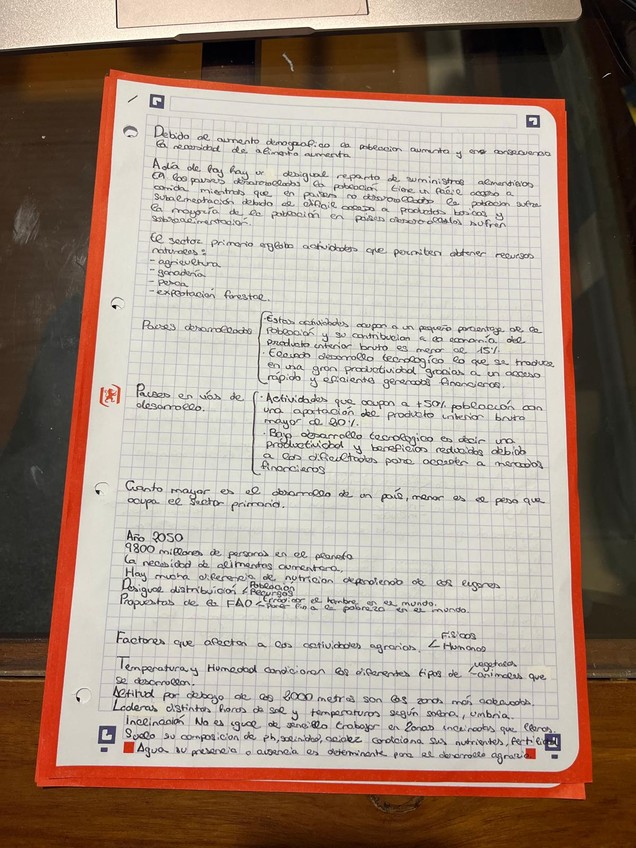 Debido al aumento demografico la poblacion aumenta y en consecuencia
la necesidad de alimento aumenta.
A dia de hoy hay un desigual reparto de suministros alimenticios
en los paises desarrollados la poblacion tiene un facil acceso a
comida mientras que en paises no desarrollados la poblacion sufre
subalimentación debido al dificil acceso a productos basicos y
la mayoría de la población en países desarrollados sufren
sobrealimentación.
El sector primario engloba actividades que permiten obtener recursos
naturales:
- agricultura
- ganadería
- Pesca
- explotación forestal.
Paises desarrollados
· Estas actividades ocupan a un pequeño porcentage de la
Población y su contribucion a la economía del
producto interior bruto es menor al 15%.
· Elevado desarrollo tecnologico lo que se traduce
en una gran productividad gracias a un acceso
rápido y eficientes generados financieros.
Paises en vías de
desarrollo.
· Actividades que ocupan a +50% población con
una aportación del producto interior bruto
mayor al 20%.
· Bajo desarrollo tecnologico es decir una
productividad y beneficios reducidos debido
a las dificultades para acceder a mercados
financieros
Cuanto mayor es el desarrollo de un país, menor es el peso que
ocupa el sector primario.
Año 2050
9800 millones de personas en el planeta
La necesidad de alimentos aumentara.
Hay mucha diferencia de nutricion dependiendo de los lugares
Desigual distribución < Población
Recursos
Propuestas de la FAO < Erradicar el hambre en el mundo.
Poner fin a la pobreza en el mundo.
Factores que afectan a las actividades agrarias. < Físicos
Humanos
Temperatura y Humedad condicionan los diferentes tipos de vegetales
animales que
se desarrollan.
Altitud por debajo de los 2000 metros son las zonas más adecuadas.
Laderas distintas horas de sol y temperaturas según solana, umbria.
Inclinación No es igual de sencillo trabajar en zonas inclinadas que llanas.
Suelo su composicion de ph, salinidad, acidez condiciona sus nutrientes, fertilidad
Agua su presencia o ausencia es determinante para el desarrollo agrario.